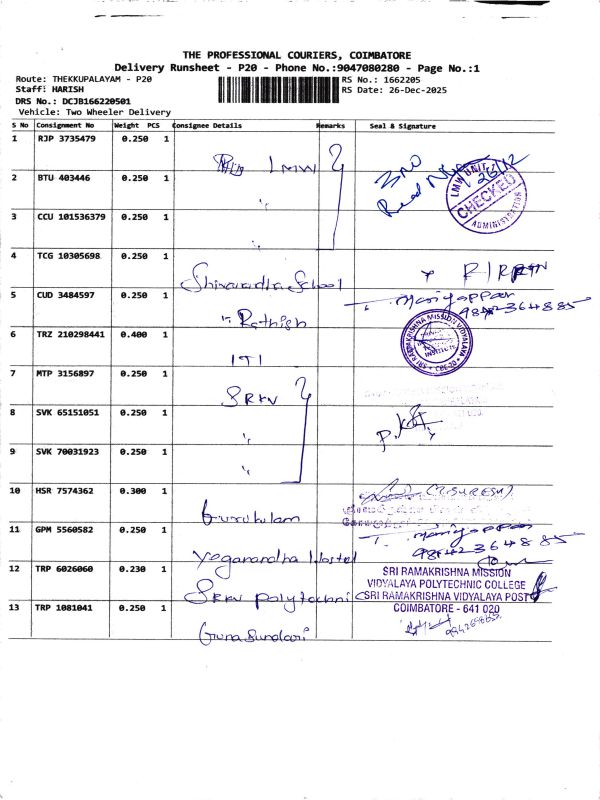 THE PROFESSIONAL COURIERS, COIMBATORE
Delivery Runsheet - P20 - Phone No.:9047080280 - Page No.:1
Route: THEKKUPALAYAM - P20
RS No.: 1662205
Staff: HARISH
RS Date: 26-Dec-2025
DRS No.: DCJB166220501
Vehicle: Two Wheeler Delivery
S No Consignment No Weight PCS Consignee Details Remarks Seal & Signature
1 RJP 3735479 0.250 1 LMW
2 BTU 403446 0.250 1 "
3 CCU 101536379 0.250 1 "
LMW UNIT
CHECKED
ADMINISTRATION
26/12
4 TCG 10305698 0.250 1 School
5 CUD 3484597 0.250 1 " Rathish
T. Mariyappan
9842364885
6 TRZ 210298441 0.400 1 ITI
SRI RAMAKRISHNA MISSION VIDYALAYA
INSTITUTE
CBE-20
7 MTP 3156897 0.250 1 SRKV
8 SVK 65151051 0.250 1 "
9 SVK 70031923 0.250 1 "
10 HSR 7574362 0.300 1 Gurukulam
11 GPM 5560582 0.250 1 Yoganandha Hostel
T. Mariyappan
9842364885
12 TRP 6026060 0.230 1 SRKV Polytechni
SRI RAMAKRISHNA MISSION
VIDYALAYA POLYTECHNIC COLLEGE
SRI RAMAKRISHNA VIDYALAYA POST
COIMBATORE - 641 020
13 TRP 1081041 0.250 1 Guna Sundari